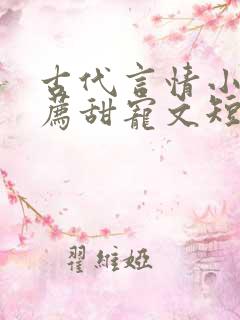 古代言情小
薦甜寵文短
翟維婭